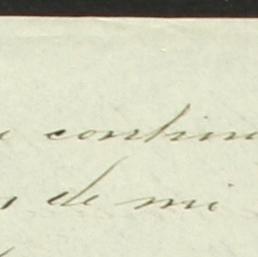 contin
de mi